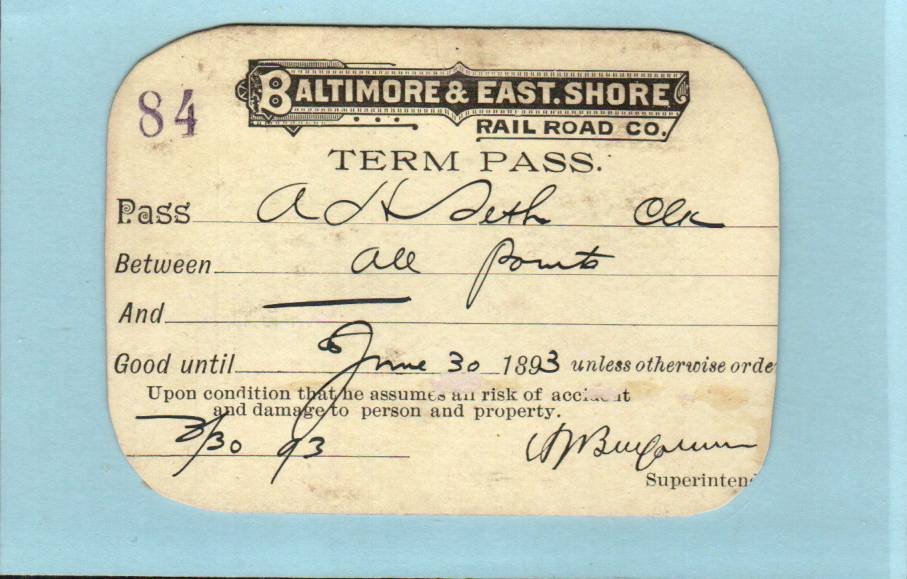 84
BALTIMORE & EAST. SHORE
RAIL ROAD CO.
TERM PASS.
Pass A H Seth Clk
Between all points
And
Good until June 30 1893 unless otherwise orde
Upon condition that he assumes all risk of accident
and damage to person and property.
3/30 93
Benjamin
Superintend